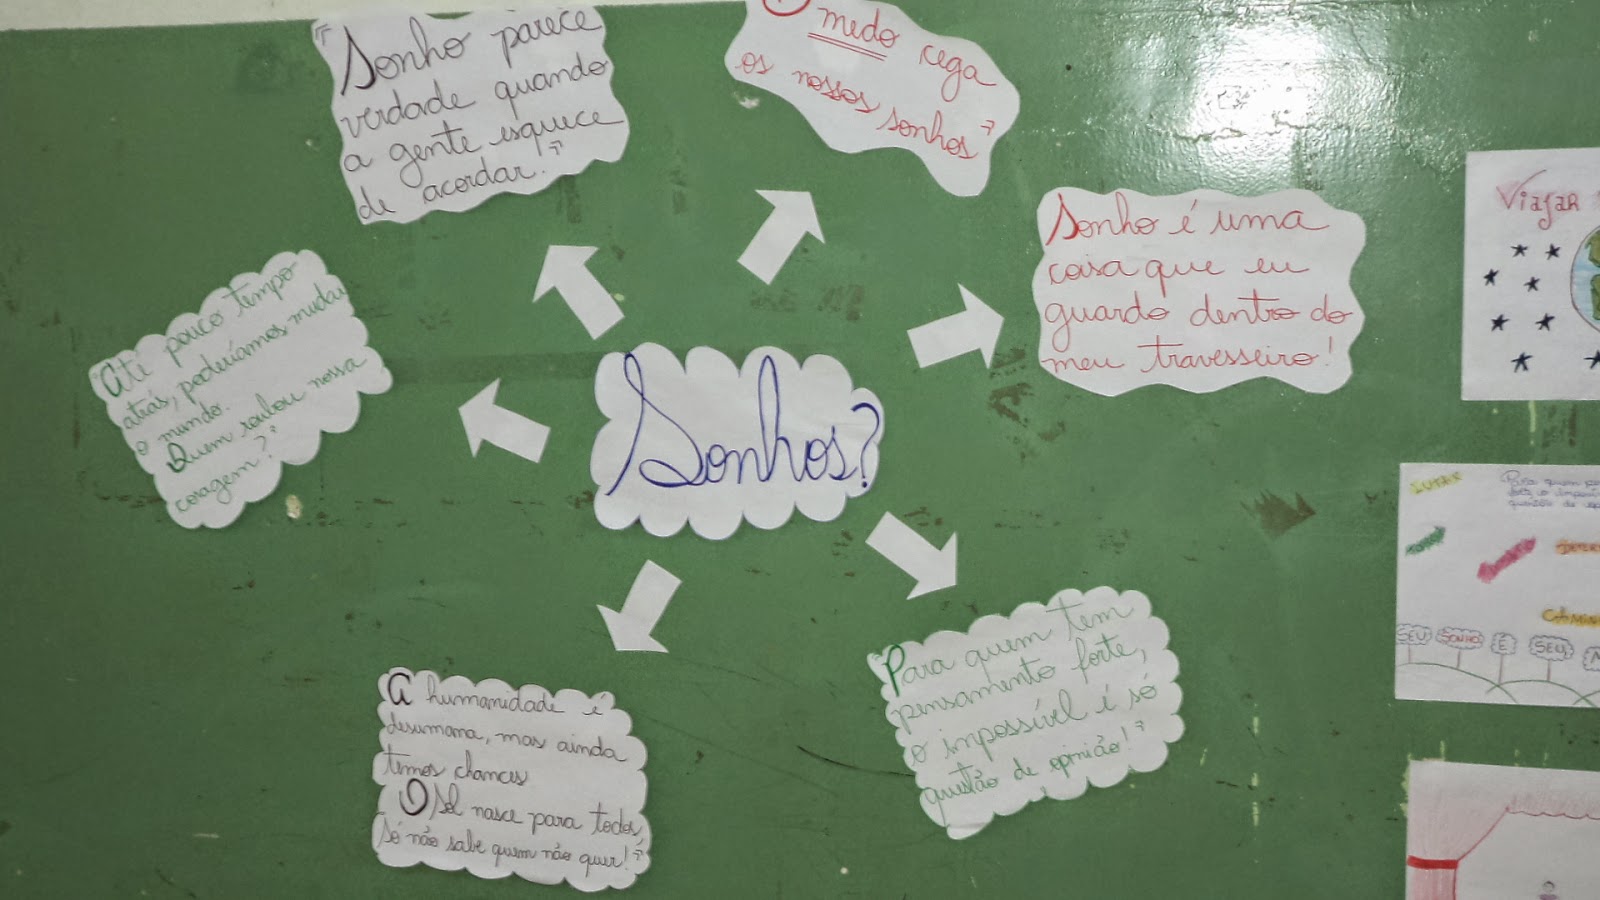 "Sonho parece
verdade quando
a gente esquece
de acordar!"
O medo cega
os nossos sonhos"
Sonho é uma
coisa que eu
guardo dentro do
meu travesseiro!
Até pouco tempo
atrás, poderíamos mudar
o mundo.
Quem roubou nossa
coragem?"
Sonhos?
A humanidade é
desumana, mas ainda
temos chances
O Sol nasce para todos,
Só não sabe quem não quer!"
"Para quem tem
pensamento forte,
o impossível é só
questão de opinião!"
VIAJAR
LUTAR
Para quem
SEU SONHO É SEU